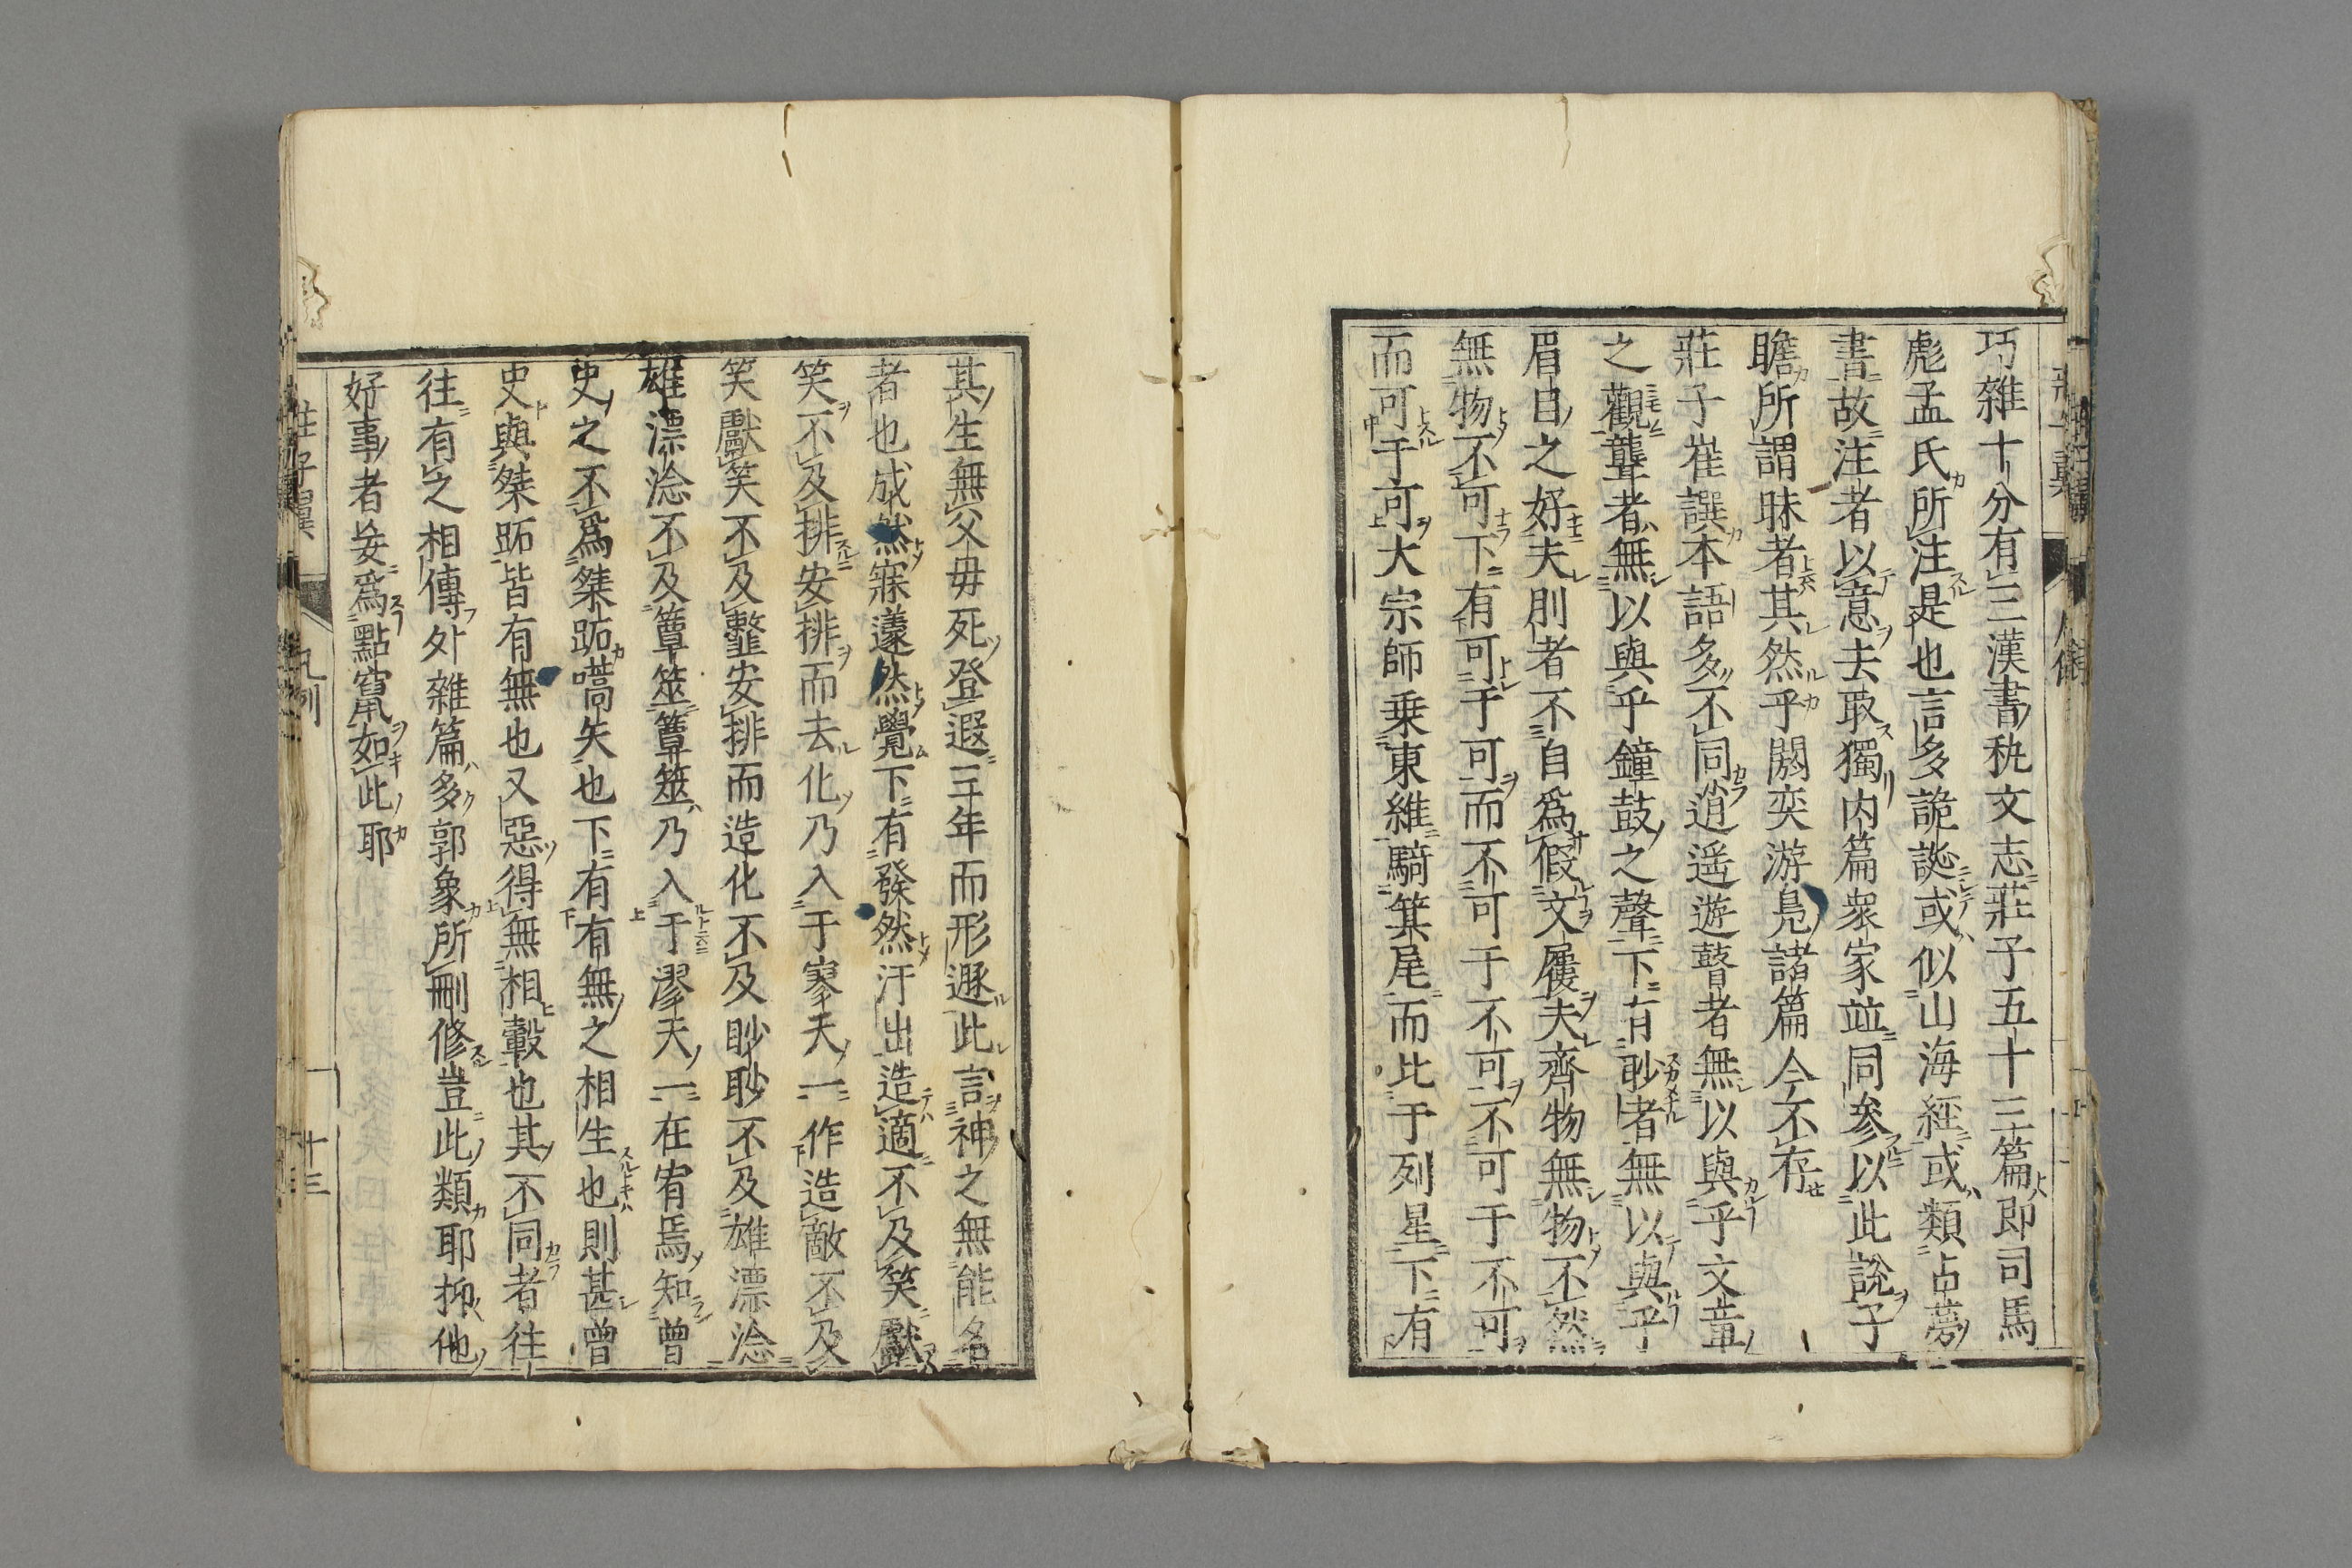 巧雜十分有三漢書秇文志莊子五十三篇即司馬
彪孟氏所注是也言多詭誕或似山海經或類占夢
書故注者以意去取獨内篇衆家竝同參以此說子
瞻所謂昧者其然乎閼奕游鳧諸篇今不存
莊子崔譔本語多不同逍遥遊瞽者無以與乎文章
之觀聾者無以與乎鐘鼓之聲下有眇者無以與乎
眉目之好夫刖者不自爲假文屨夫齊物無物不然
無物不可下有可于可而不可于不可不可于不可
而可于可大宗師乗東維騎箕尾而比于列星下有
其生無父母死登遐三年而形遯此言神之無能名
者也成然寐蘧然覺下有發然汗出造適不及笑獻
笑不及排安排而去化乃入于寥天一作造敵不及
笑獻笑不及䪠安排而造化不及眇眇不及雄漂淰
雄漂淰不及簟筮簟筮乃入于漻天一在宥焉知曾
史之不爲桀跖嚆矢也下有有無之相生也則甚曾
史與桀跖皆有無也又惡得無相轂也其不同者往
往有之相傳外雜篇多郭象所刪修豈此類耶抑他
好事者妄爲點竄如此耶
莊子翼
凡例
十三